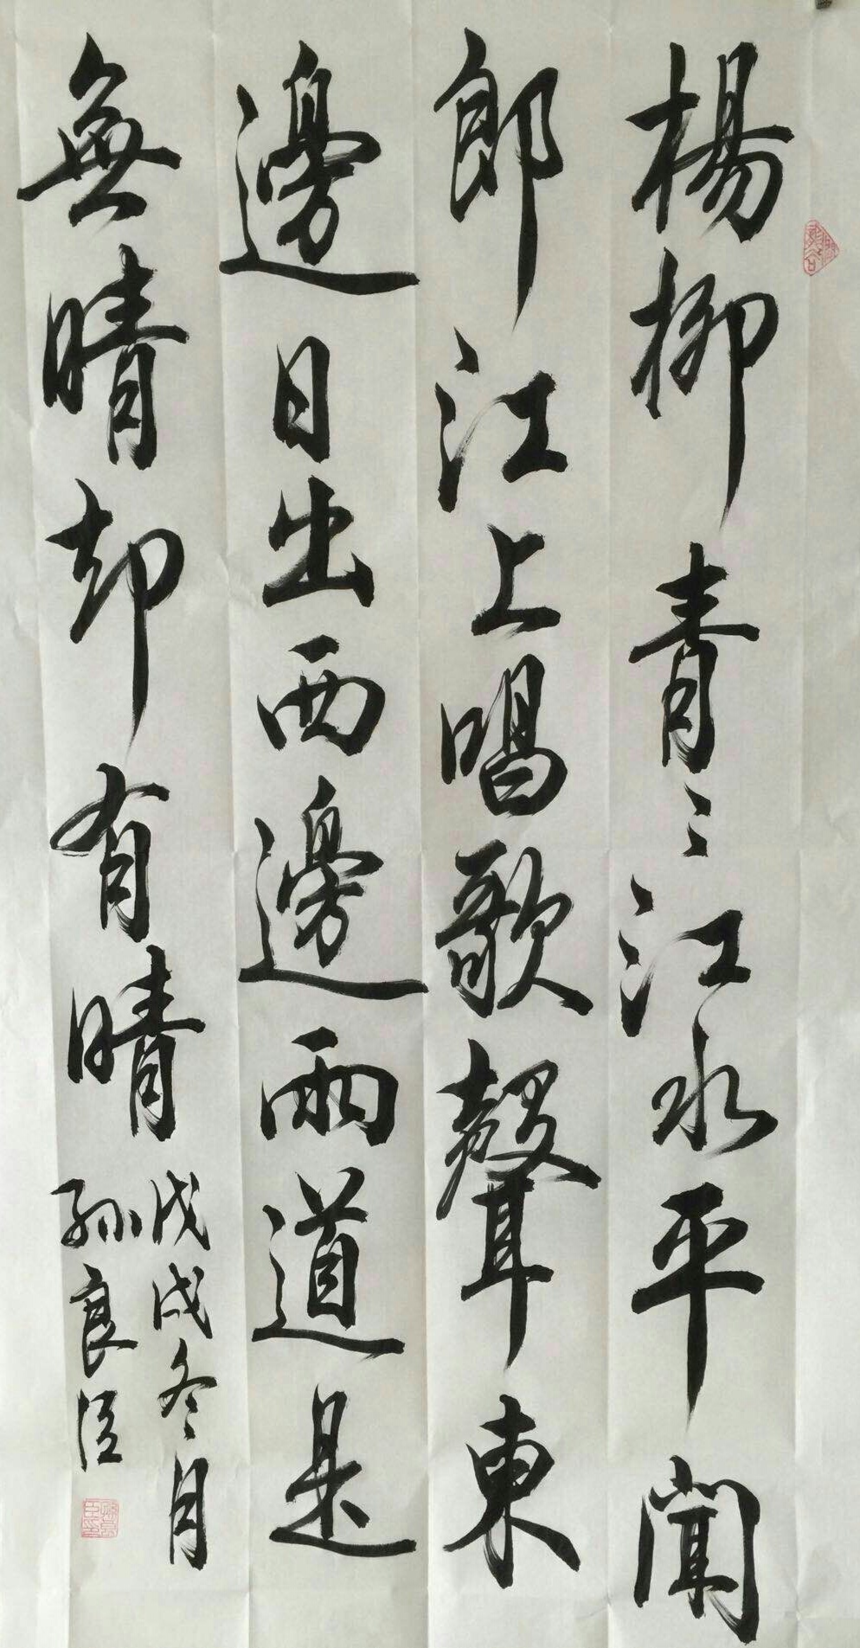 楊柳青〻江水平聞
郎江上唱歌聲東
邊日出西邊雨道是
無晴却有晴
戊戌冬月
孫良臣